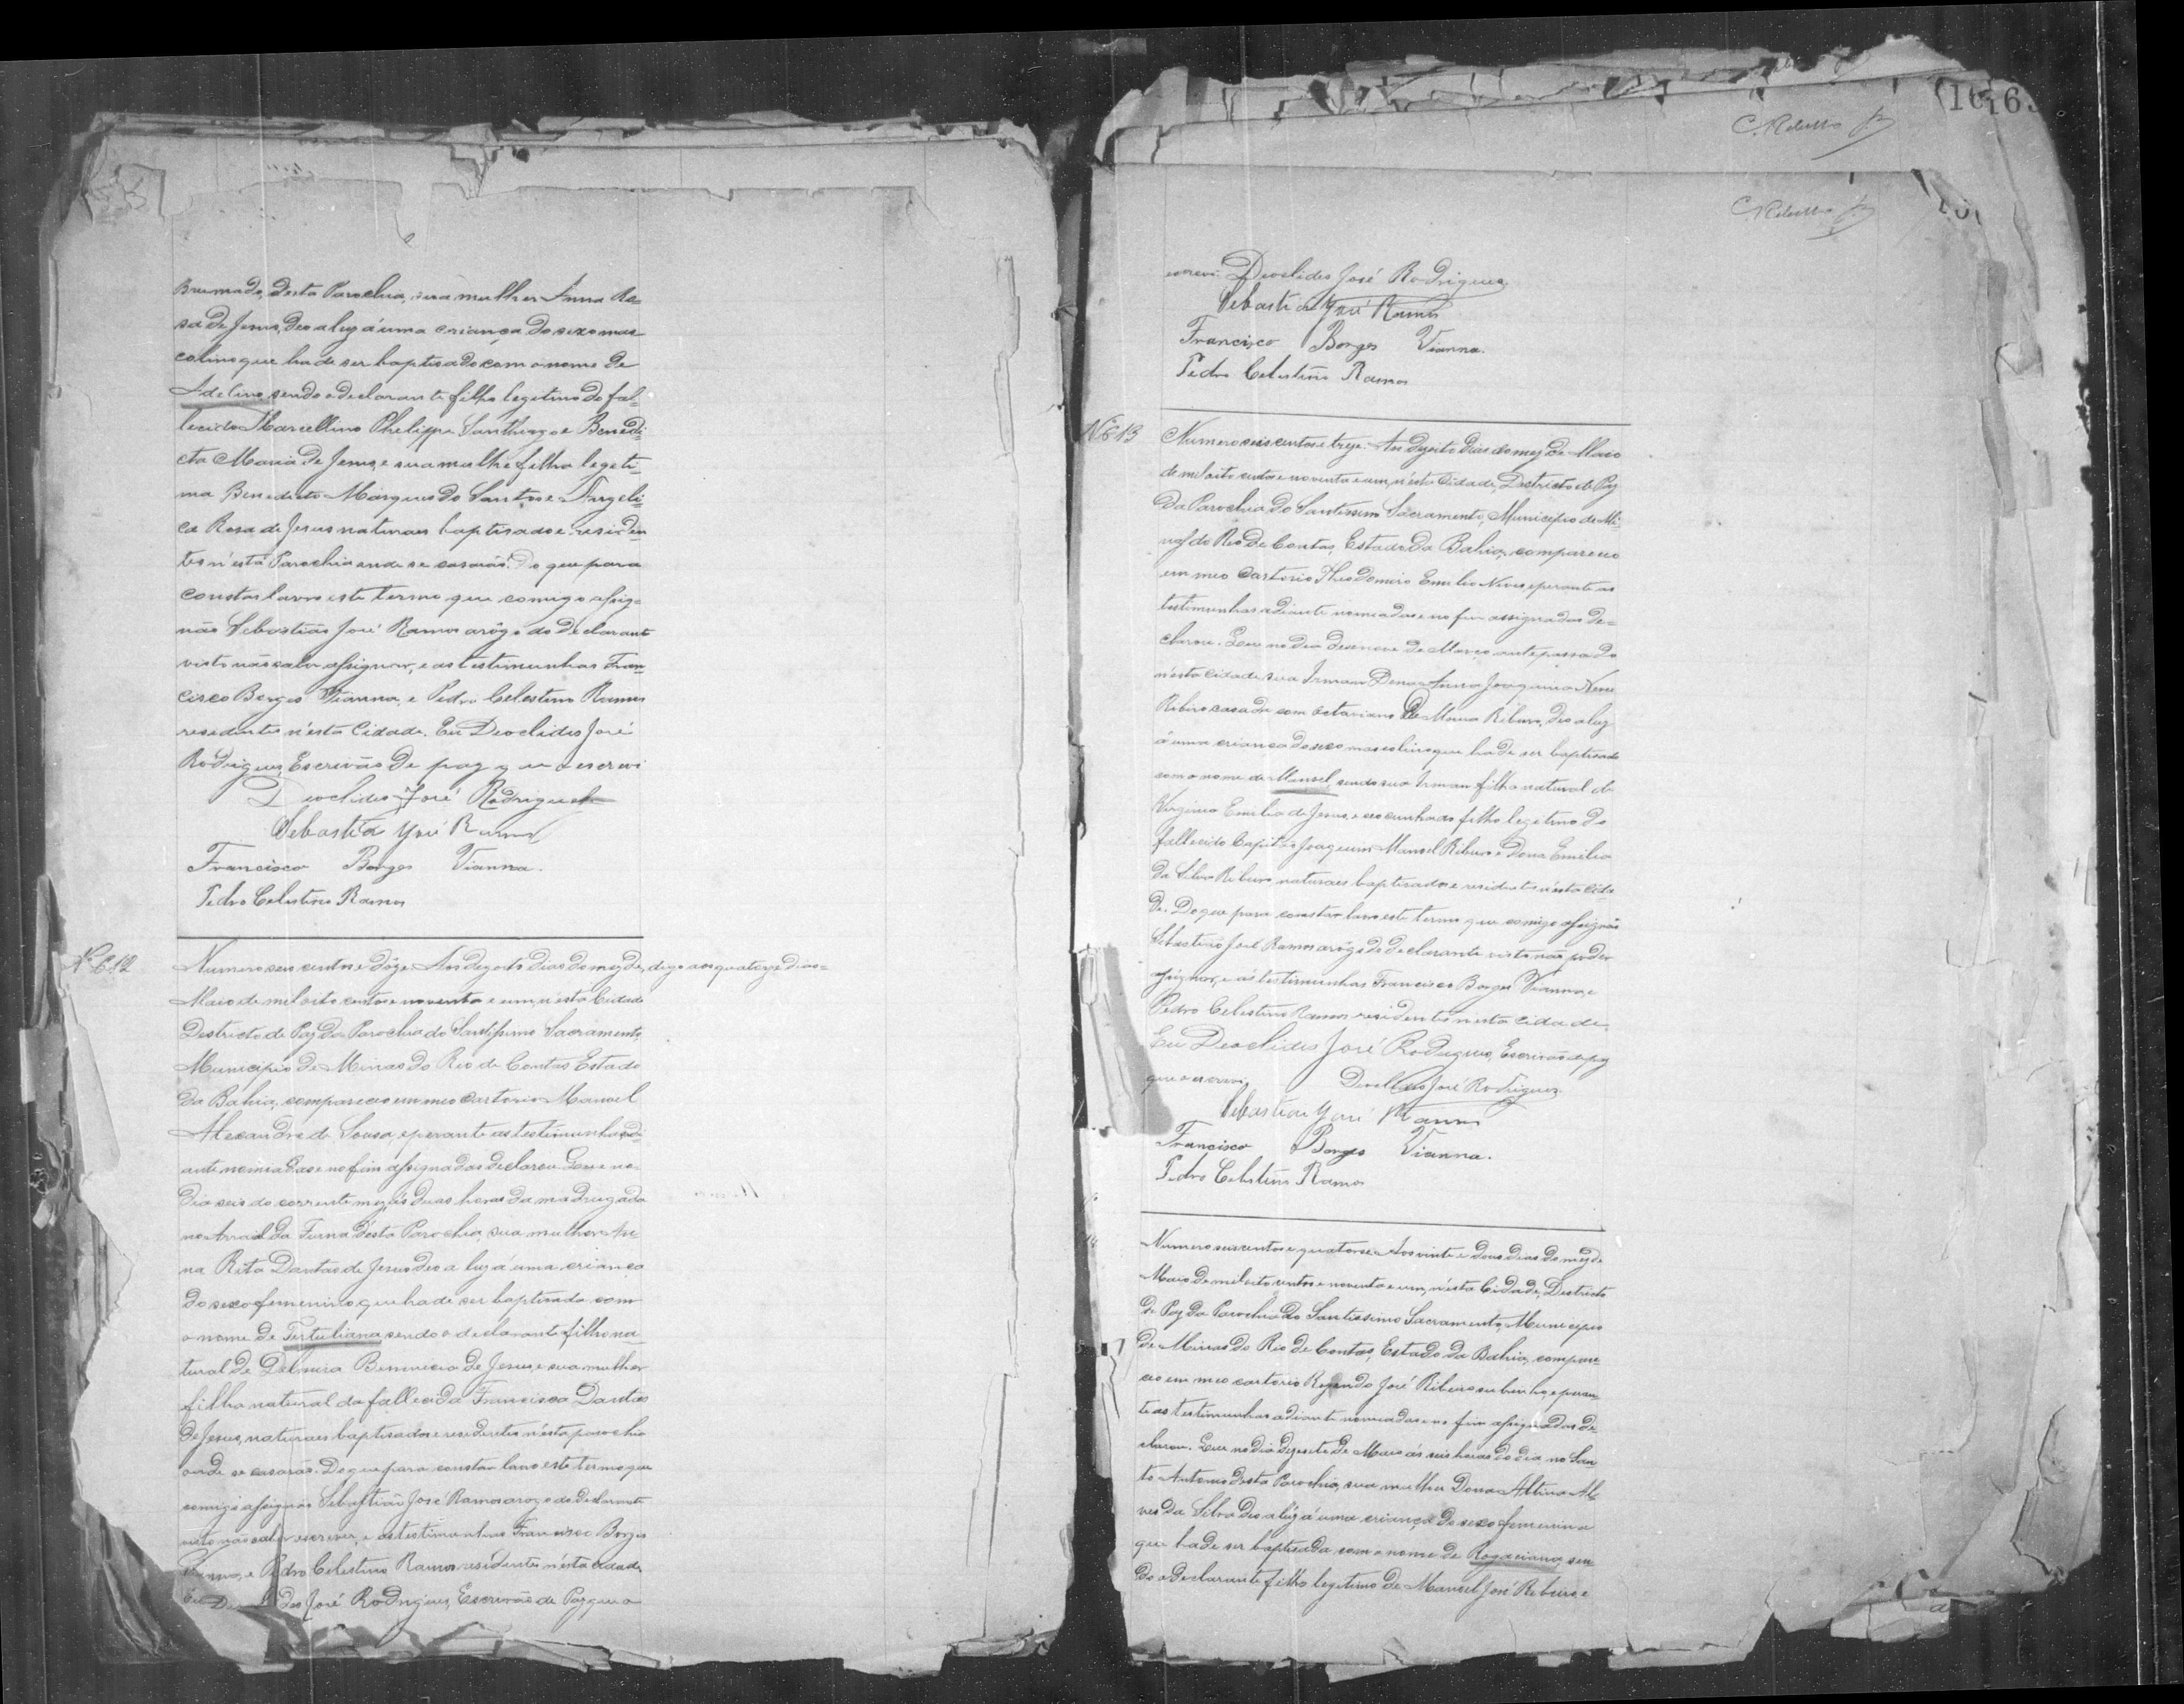 Brumado, desta Parochia, sua mulher Anna Ro-
sa de Jesus, deo a luz á uma criança do sexo mas-
colino que ha de ser baptisado com o nome de
Adelino, sendo o declarante filho legitimo do fal-
lecido Marcellino Phelippe Santhiago e Benedi-
cta Maria de Jesus, e sua mulher filha legiti-
ma Benedicto Marques do Santos e Angeli-
ca Rosa de Jesus naturaes baptisados e residen-
tes n'esta Parochia onde se casarão. Do que para
constar lavro este termo que comigo assig-
não Sebastião José Ramos arôgo do declarante
visto não saber assignar, e as testimunhas Fran-
cisco Borges Vianna, e Pedro Celestino Ramos
residentes n'esta Cidade. Eu Deoclides José
Rodrigues, Escrivão de paz que o escrevi
Deoclides José Rodrigues
Sebastião José Ramos
Francisco Borges Vianna.
Pedro Celestino Ramos
Nº 612
Numero seis centos e dôze. Aos dezoito dias do mez de, digo aos quatorze dias
Maio de mil oito centos e noventa e um, n'esta Cidade
Destricto de Paz da Parochia do Santissimo Sacramento,
Municipio de Minas do Rio de Contas Estado
da Bahia, compareceo em meo Cartorio Manoel
Alexandre de Sousa, e perante as testimunhas adi-
ante nomiadas e no fim assignadas declarou. Que no
dia seis do corrente mez, ás duas horas da madrugada
no Arraial da Furna d'esta Parochia, sua mulher An-
na Rita Dantas de Jesus deo a luz á uma criança
do sexo femenino que ha de ser baptisada com
o nome de Tertuliana, sendo o declarante filho na-
tural de Delmira Bemvicia de Jesus, e sua mulher
filha natural da fallecida Francisca Dantas
de Jesus, naturaes baptisados e residentes n'esta parochia
onde se casarão. Do que para constar lavro este termo que
comigo assignão Sebastião José Ramos arogo do declarante
visto não saber escrever, e as testimunhas Francisco Borges
Vianna, e Pedro Celestino Ramos residentes n'esta cidade,
Eu Deoclides José Rodrigues, Escrivão de Paz que o
C. Rebello Jr
C. Rebello Jr
escrevi. Deoclides José Rodrigues
Sebastião José Ramos
Francisco Borges Vianna.
Pedro Celestino Ramos
Nº 613
Numero seis centos e treze. Aos dezoito dias do mez de Maio
de mil oito centos e noventa e um, n'esta Cidade, Destricto de Paz
da Parochia do Santissimo Sacramento, Municipio de Mi-
nas do Rio de Contas, Estado da Bahia, compareceo
em meo Cartorio Theodomiro Emilio Neves e perante as
testimunhas adiante nomiadas e no fim assignadas de-
clarou. Que no dia desenove de Março antepassado
n'esta Cidade, sua Irman Dona Anna Joaquina Neves
Ribeiro casada com Octaviano de Moura Ribeiro, deo a luz
á uma criança do sexo mascolino que ha de ser baptisado
com o nome de Manoel, sendo sua Irman filha natural de
Virginia Emilia de Jesus, e seo cunhado filho legitimo do
fallecido Capitão Joaquim Manoel Ribeiro e Dona Emilia
da Silva Ribeiro naturaes baptisados e residentes n'esta Cida-
de. Do que para constar lavro este termo que comigo assignão
Sebastião José Ramos arôgo do declarante visto não poder
assignar, e ás testimunhas Francisco Borges Vianna, e
Pedro Celestino Ramos residentes n'esta Cidade.
Eu Deoclides José Rodrigues, Escrivão de paz
que o escrevi, Deoclides José Rodrigues.
Sebastião José Ramos
Francisco Borges Vianna.
Pedro Celestino Ramos
Numero seiscentos e quatorse. Aos vinte e dous dias do mez de
Maio de mil oito centos e noventa e um, n'esta Cidade, Destricto
de Paz da Parochia do Santissimo Sacramento, Municipio
de Minas do Rio de Contas, Estado da Bahia, compare-
ceo em meo cartorio José Ribeiro e peran-
te as testimunhas adiante nomiadas e no fim assignadas de-
clarou. Que no dia dezesete de Maio ás seis horas do dia no San-
to Antonio desta Parochia, sua mulher Dona Altina Al-
ves da Silva deo a luz á uma criança do sexo femenina
que ha de ser baptisada com o nome de Rogaciana, sen-
do o declarante filho legitimo de Manoel José Ribeiro e